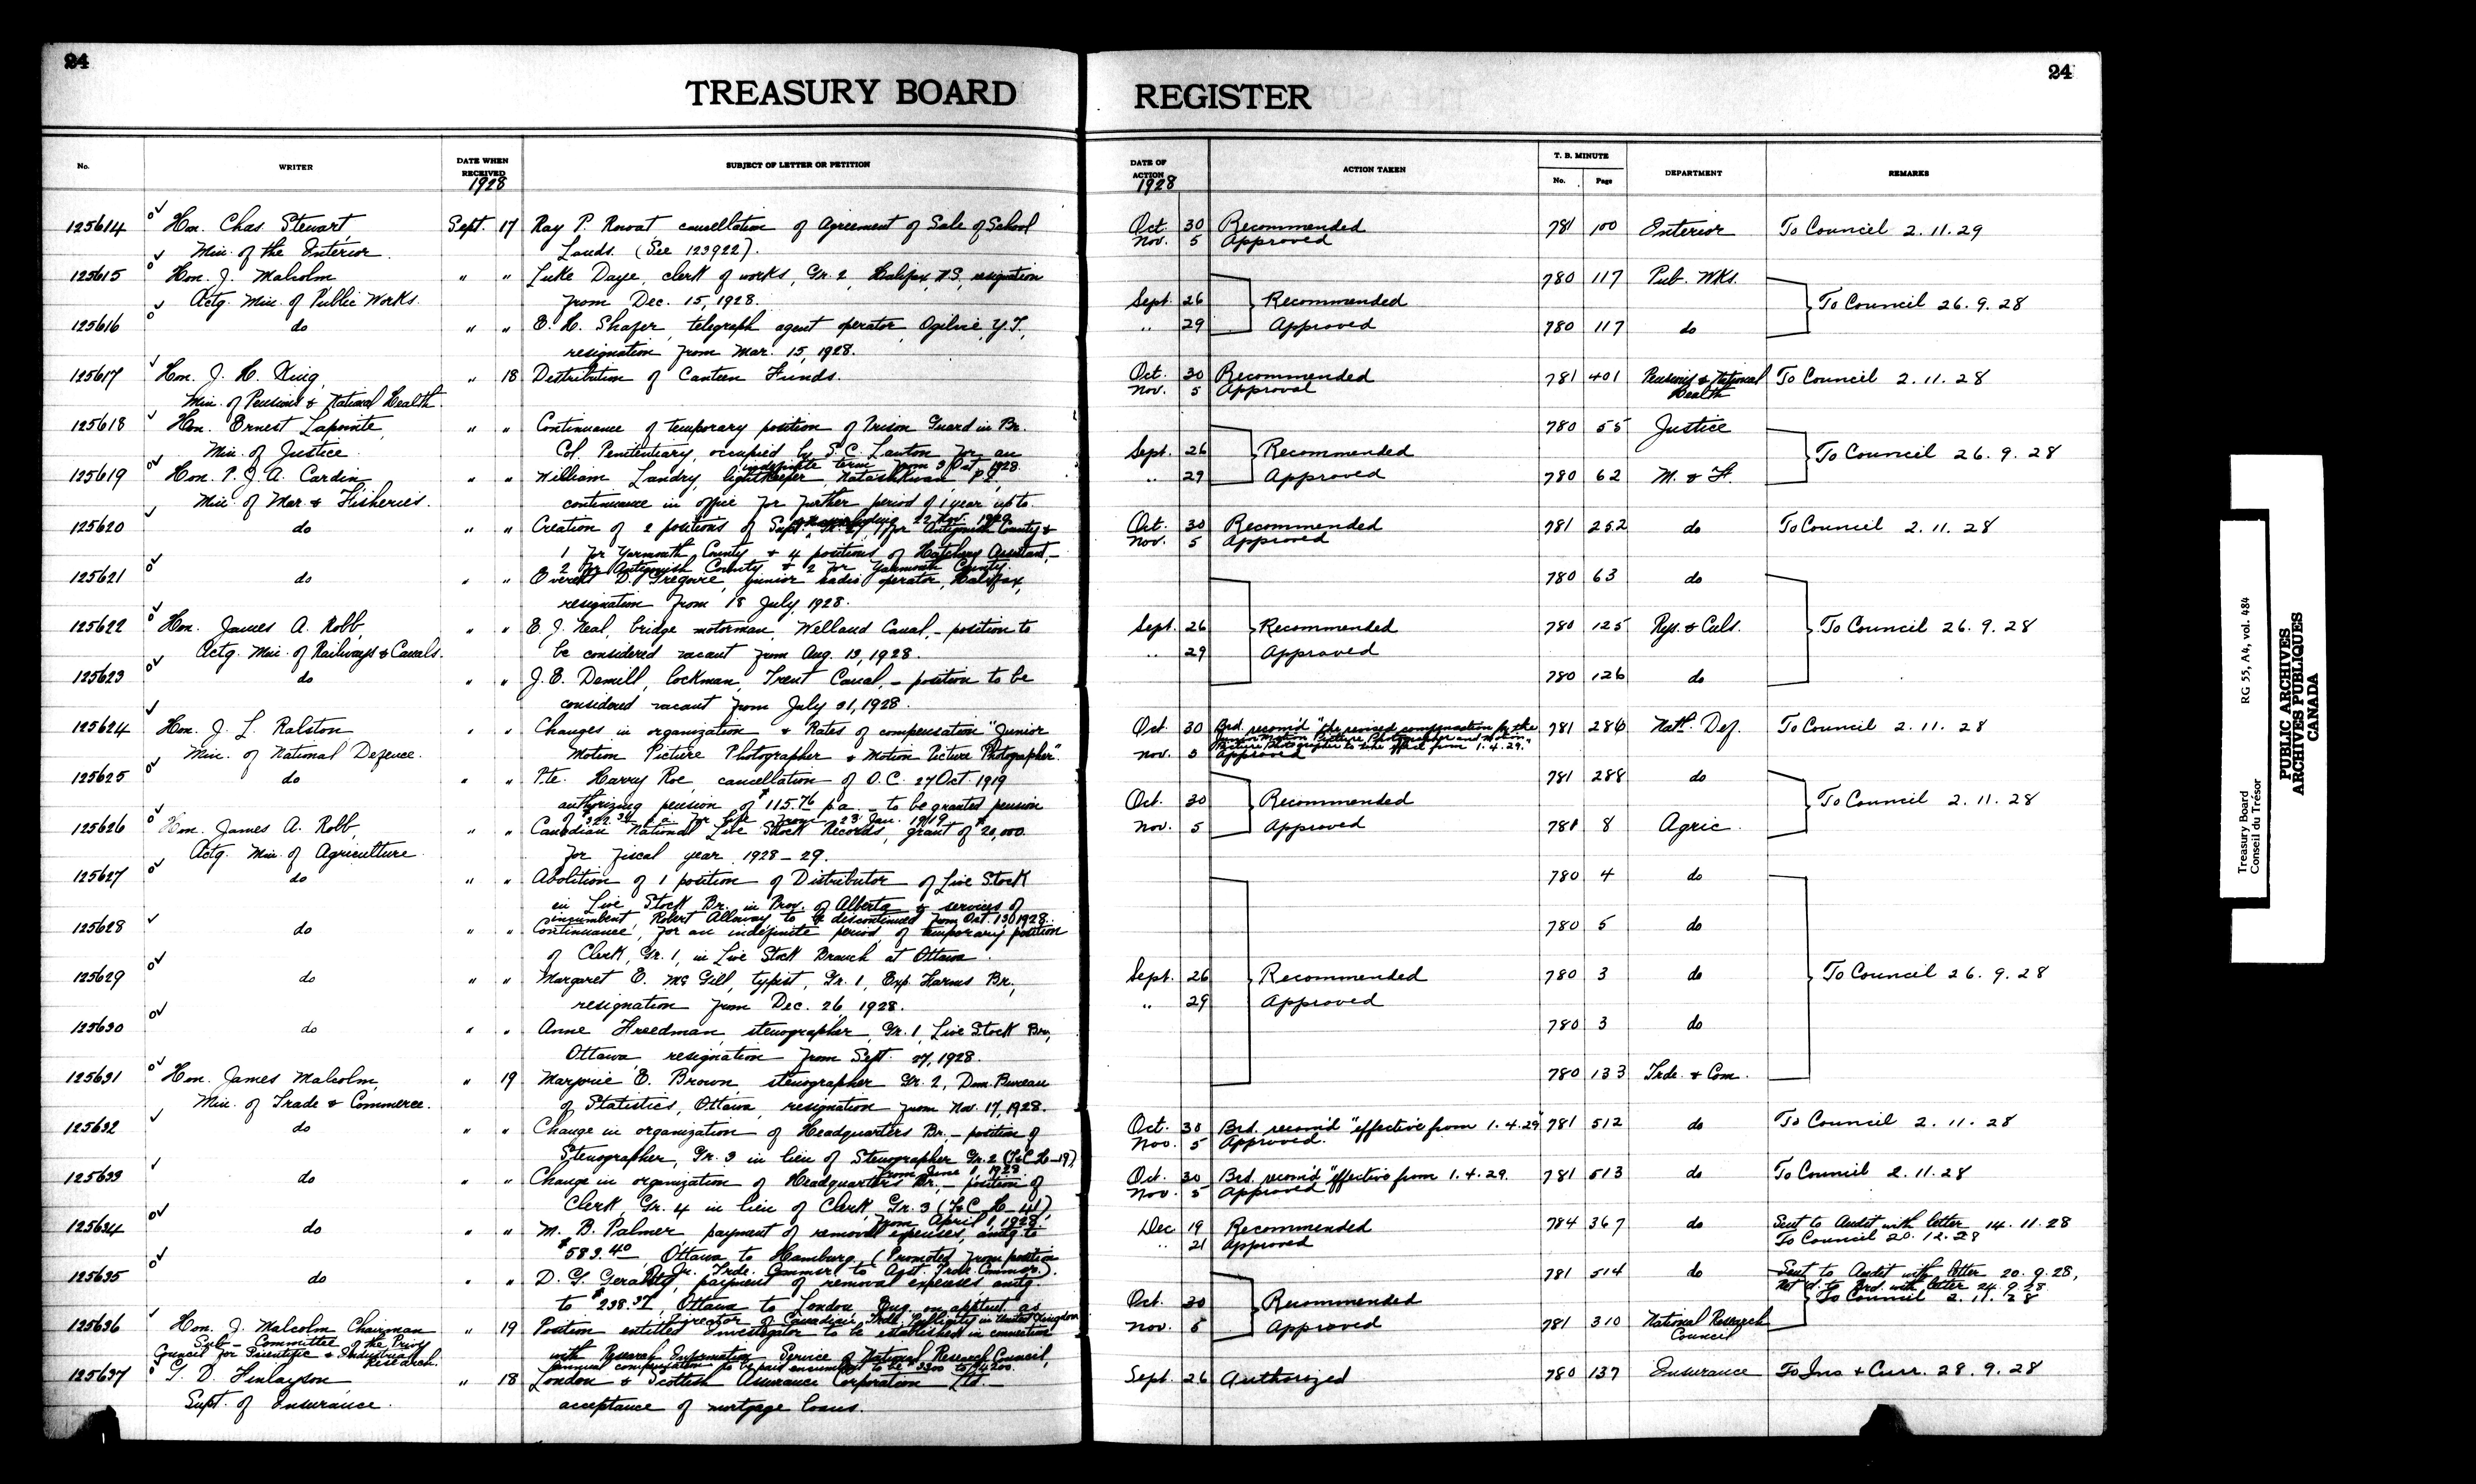 24
TREASURY BOARD
No.
WRITER
DATE WHEN RECEIVED
1928
SUBJECT OF LETTER OR PETITION
125614 Hon. Chas. Stewart, Sept. 17 Ray P. cancellation of Agreement of Sale of School
Min. of the Interior. Lands. (See 123922).
125615 Hon. J. Malcolm " " Luke Daye, clerk of works, Gr. 2, Halifax, N.S., resignation
Actg. Min. of Public Works. from Dec. 15, 1928.
125616 do " " E. H. Shafer, telegraph agent operator, Ogilvie, Y.T.,
resignation from Mar. 15, 1928.
125617 Hon. J. H. King, " 18 Distribution of Canteen Funds.
Min. of Pensions & National Health.
125618 Hon. Ernest Lapointe, " " Continuance of temporary position of Prison Guard in Br.
Min. of Justice Col. Penitentiary, occupied by S.C. Lawton for an
indefinite term from 3 Oct. 1928.
125619 Hon. P. J. A. Cardin " " William Landry, lightkeeper, Natashkwan P.Q.,
Min. of Mar. & Fisheries. continuance in office for further period of 1 year up to
22 Nov. 1929.
125620 do " " Creation of 2 positions of Supt. 1 for Antigonish County &
1 for Yarmouth County & 4 positions of Hatchery Assistant,—
2 for Antigonish County & 2 for Yarmouth County.
125621 do " " Everett D. Gregoire, junior radio operator, Halifax,
resignation from 18 July, 1928.
125622 Hon. James A. Robb, " " E. J. Neal, bridge motorman, Welland Canal,— position to
Actg. Min. of Railways & Canals. be considered vacant from Aug. 13, 1928.
125623 do " " J. E. Demill, lockman, Trent Canal,— position to be
considered vacant from July 31, 1928.
125624 Hon. J. L. Ralston " " Changes in organization & Rates of compensation "Junior
Min. of National Defence. Motion Picture Photographer & Motion Picture Photographer".
125625 do " " Pte. Harry Roe, cancellation of O.C. 27 Oct. 1919
authorizing pension of $115.76 p.a.— to be granted pension
of p.a. for life from 23 Jan. 1919
125626 Hon. James A. Robb, " " Canadian National Live Stock Records, grant of $20,000.
Actg. Min. of Agriculture. for fiscal year 1928-29.
125627 do " " Abolition of 1 position of Distributor of Live Stock
in Live Stock Br. in Prov. of Alberta & services of
incumbent Robert Alloway to be discontinued from Oct. 13, 1928.
125628 do " " Continuance, for an indefinite period of temporary position
of Clerk, Gr. 1, in Live Stock Branch at Ottawa.
125629 do " " Margaret E. McGill, typist, Gr. 1, Exp. Farms Br.,
resignation from Dec. 26, 1928.
125630 do " " Anne Freedman, stenographer, Gr. 1, Live Stock Br.,
Ottawa resignation from Sept. 27, 1928.
125631 Hon. James Malcolm, " 19 Marjorie E. Brown stenographer Gr. 2, Dom. Bureau
Min. of Trade & Commerce. of Statistics, Ottawa, resignation from Nov. 17, 1928.
125632 do " " Change in organization of Headquarters Br.,— position of
Stenographer, Gr. 3 in lieu of Stenographer Gr. 2 (T&C H-19),
from June 1, 1928.
125633 do " " Change in organization of Headquarters Br.,— position of
Clerk, Gr. 4 in lieu of Clerk Gr. 3 (T&C H-41)
from April 1, 1928.
125634 do " " M. B. Palmer, payment of removal expenses, amtg. to
$583.40 Ottawa to Hamburg, (Promoted from position
of Jr. Trde. Commsr. to Asst. Trde. Commsr.).
125635 do " " D. G. Geraldty, payment of removal expenses amtg.
to $238.37, Ottawa to London, Eng. on apptmt. as
Director of Canadian Trde. Publicity in United Kingdom
125636 Hon. J. Malcolm Chairman " 19 Position entitled Investigator to be established in connection
Sub-Committee of the Privy
Council for Scientific & Industrial Research. with Research Information Service of National Research Council,
annual compensation to be paid incumbent to be $3300 to $4200.
125637 G. D. Finlayson " 18 London & Scottish Assurance Corporation Ltd.—
Supt. of Insurance. acceptance of mortgage loans.
24
REGISTER
DATE OF ACTION
1928
ACTION TAKEN
T. B. MINUTE
No. Page
DEPARTMENT
REMARKS
Oct. 30 Recommended 781 100 Interior To Council 2.11.29
Nov. 5 Approved
780 117 Pub. Wks.
Sept. 26 Recommended To Council 26.9.28
" 29 Approved 780 117 do
Oct. 30 Recommended 781 401 Pensions & National Health To Council 2.11.28
Nov. 5 Approval
780 55 Justice
Sept. 26 Recommended To Council 26.9.28
" 29 Approved 780 62 M. & F.
Oct. 30 Recommended 781 252 do To Council 2.11.28
Nov. 5 Approved
780 63 do
Sept. 26 Recommended 780 125 Rys. & Cnls. To Council 26.9.28
" 29 Approved
780 126 do
Oct. 30 Brd. recom'd "the revised compensation for the 781 286 Natl. Def. To Council 2.11.28
Junior Motion Picture Photographer and Motion
Picture Photographer to take effect from 1.4.29."
Nov. 5 Approved
781 288 do
Oct. 30 Recommended To Council 2.11.28
Nov. 5 Approved 781 8 Agric.
780 4 do
780 5 do
Sept. 26 Recommended 780 3 do To Council 26.9.28
" 29 Approved
780 3 do
780 133 Trde. & Com.
Oct. 30 Brd. recom'd "effective from 1.4.29" 781 512 do To Council 2.11.28
Nov. 5 Approved.
Oct. 30 Brd. recom'd "effective from 1.4.29. 781 513 do To Council 2.11.28
Nov. 5 Approved
Dec 19 Recommended 784 367 do Sent to Audit with letter 14.11.28
" 21 Approved To Council 20.12.28
781 514 do Sent to Audit with letter 20.9.28,
Ret'd. to Brd. with letter 24.9.28
Oct. 30 Recommended To Council 2.11.28
Nov. 5 Approved 781 310 National Research Council
Sept. 26 Authorized 780 137 Insurance To Ins & Curr. 28.9.28
Treasury Board RG 55, A4, vol. 484
Conseil du Trésor
PUBLIC ARCHIVES
ARCHIVES PUBLIQUES
CANADA